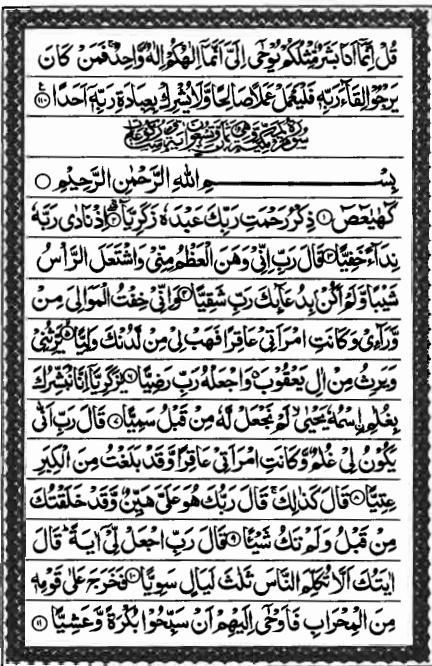 قُلْ اِنَّمَاۤ اَنَا بَشَرٌ مِّثْلُكُمْ يُوْحٰۤى اِلَیَّ اَنَّمَاۤ اِلٰهُكُمْ اِلٰهٌ وَّاحِدٌۚ فَمَنْ كَانَ
یَرْجُوْا لِقَآءَ رَبِّهٖ فَلْیَعْمَلْ عَمَلًا صَالِحًا وَّلَا یُشْرِكْ بِعِبَادَةِ رَبِّهٖۤ اَحَدًا ﴿۱۱۰﴾
بِسْــــــــــــمِ اللّٰهِ الرَّحْمٰنِ الرَّحِیْمِ
كٓهٰیٰعٓصٓ ﴿۱﴾ ذِكْرُ رَحْمَتِ رَبِّكَ عَبْدَهٗ زَكَرِیَّا ﴿۲﴾ اِذْ نَادٰى رَبَّهٗ
نِدَآءً خَفِیًّا ﴿۳﴾ قَالَ رَبِّ اِنِّیْ وَهَنَ الْعَظْمُ مِنِّیْ وَاشْتَعَلَ الرَّاْسُ
شَیْبًا وَّلَمْ اَكُنْۢ بِدُعَآىِٕكَ رَبِّ شَقِیًّا ﴿۴﴾ وَاِنِّیْ خِفْتُ الْمَوَالِیَ مِنْ
وَّرَآءِیْ وَكَانَتِ امْرَاَتِیْ عَاقِرًا فَهَبْ لِیْ مِنْ لَّدُنْكَ وَلِیًّا ﴿۵﴾ یَّرِثُنِیْ
وَیَرِثُ مِنْ اٰلِ یَعْقُوْبَ وَاجْعَلْهُ رَبِّ رَضِیًّا ﴿۶﴾ یٰزَكَرِیَّاۤ اِنَّا نُبَشِّرُكَ
بِغُلٰمِ اِ۟سْمُهٗ یَحْیٰى لَمْ نَجْعَلْ لَّهٗ مِنْ قَبْلُ سَمِیًّا ﴿۷﴾ قَالَ رَبِّ اَنّٰى
یَكُوْنُ لِیْ غُلٰمٌ وَّكَانَتِ امْرَاَتِیْ عَاقِرًا وَّقَدْ بَلَغْتُ مِنَ الْكِبَرِ
عِتِیًّا ﴿۸﴾ قَالَ كَذٰلِكَۚ قَالَ رَبُّكَ هُوَ عَلَیَّ هَیِّنٌ وَّقَدْ خَلَقْتُكَ
مِنْ قَبْلُ وَلَمْ تَكُ شَیْـًٔا ﴿۹﴾ قَالَ رَبِّ اجْعَلْ لِّیْۤ اٰیَةًؕ قَالَ
اٰیَتُكَ اَلَّا تُكَلِّمَ النَّاسَ ثَلٰثَ لَیَالٍ سَوِیًّا ﴿۱۰﴾ فَخَرَجَ عَلٰى قَوْمِهٖ
مِنَ الْمِحْرَابِ فَاَوْحٰۤى اِلَیْهِمْ اَنْ سَبِّحُوْا بُكْرَةً وَّعَشِیًّا ﴿۱۱﴾